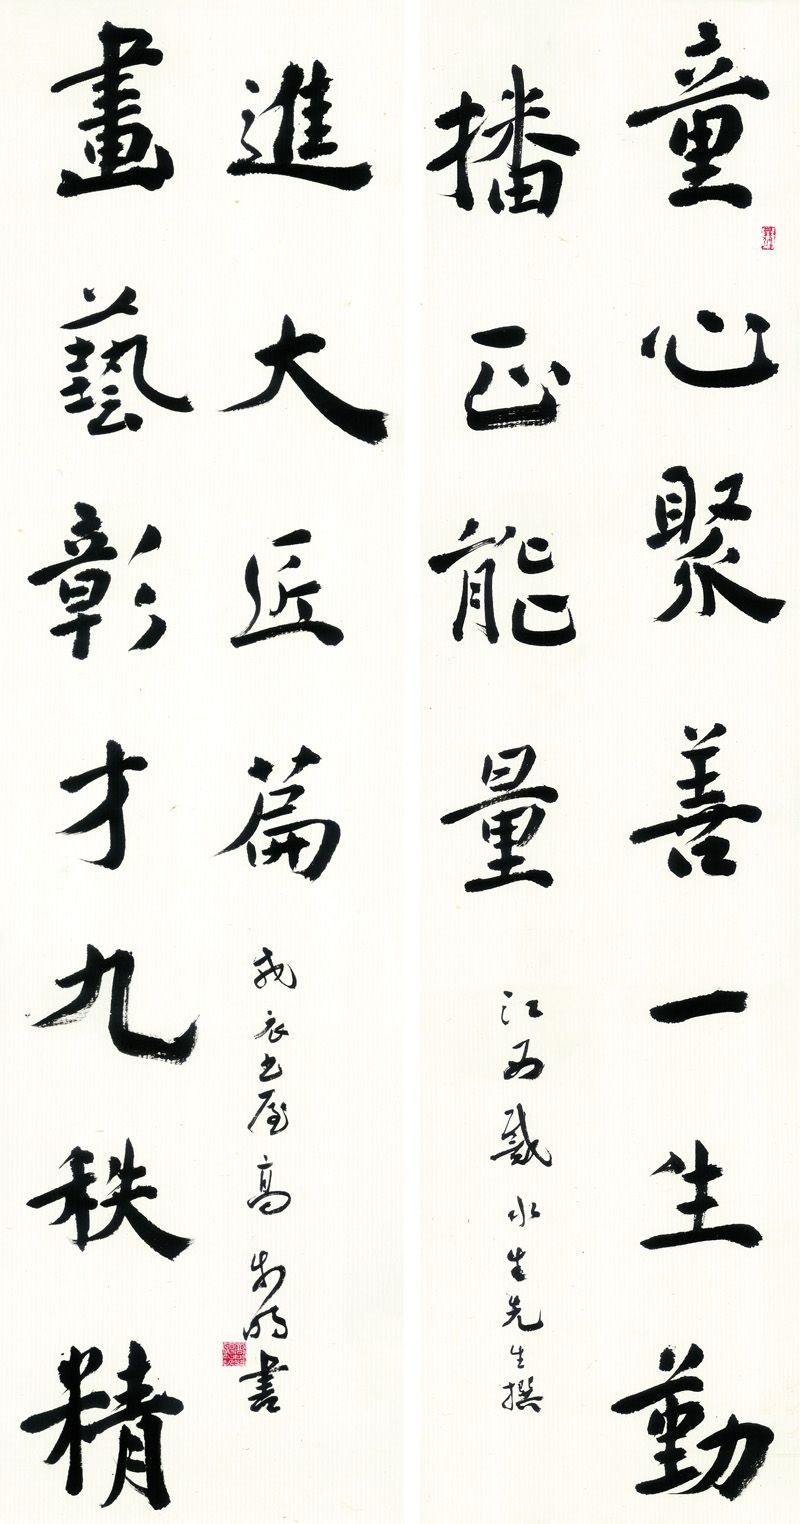 童心聚善一生勤
播正能量
江西戴水生先生撰
畫藝彰才九秩精
進大匠篇
戎衣书屋高明書